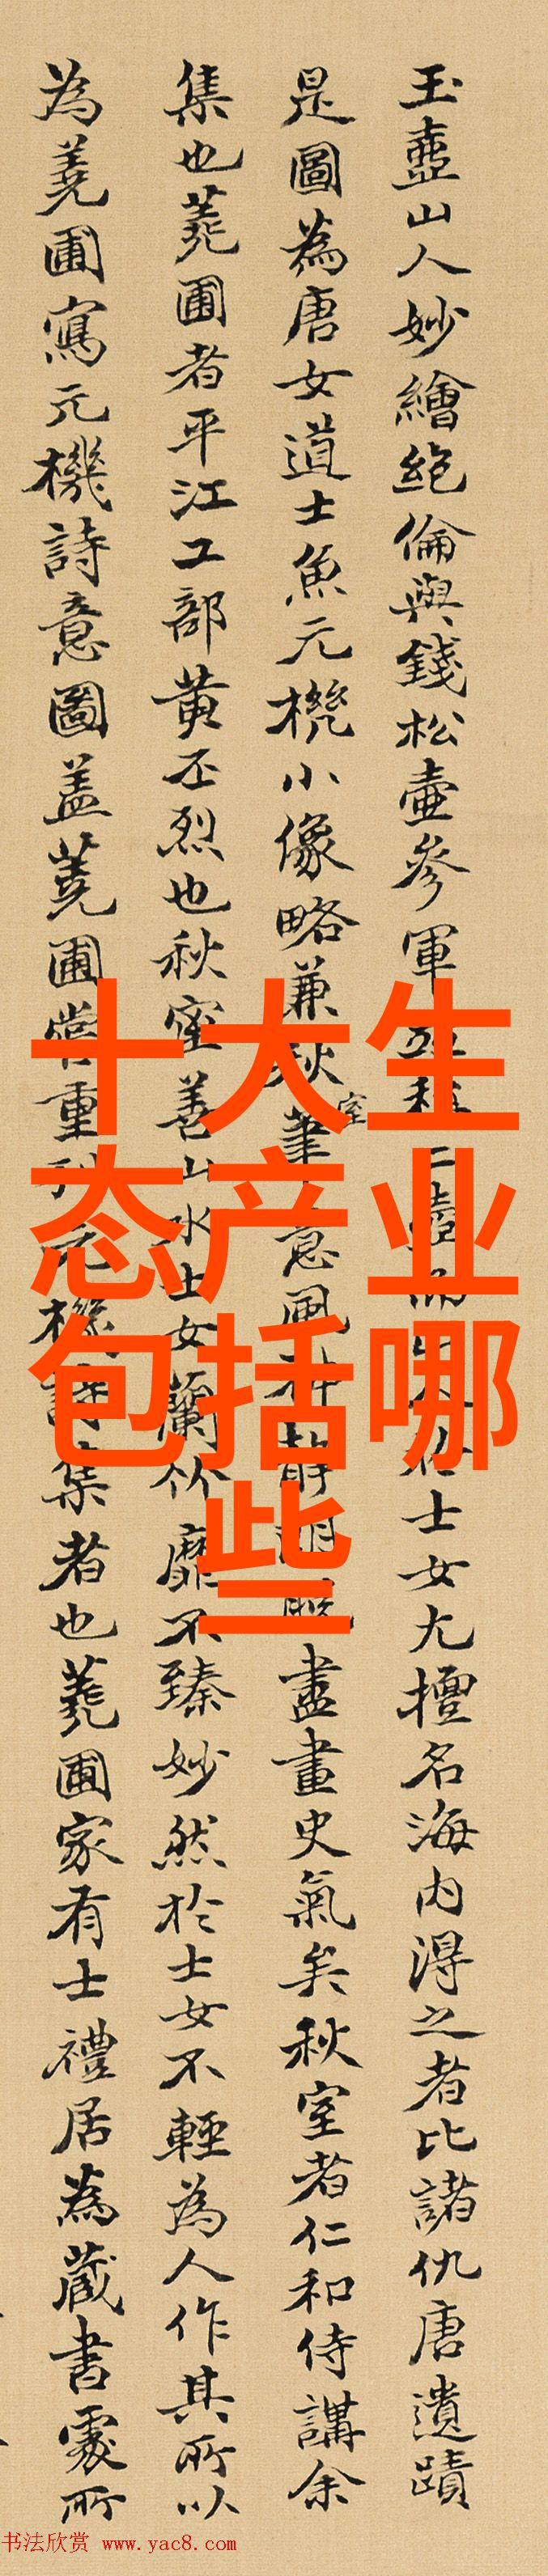 玉壺山人妙繪絕倫與錢松壺參軍士女尤擅名海內得之者比諸仇唐遺蹟
是圖為唐女道士魚元機小像略兼秋室筆意風神靜盡畫史氣矣秋室者仁和侍講余
集也蕘圃者平江工部黃丕烈也秋室善山水士女蘭竹靡不臻妙然於士女不輕為人作其所以
為蕘圃寫元機詩意圖蓋蕘圃嘗重刊元機詩集者也蕘圃家有士禮居為藏書處所
十大生
态产业
包括哪
些
书法欣赏 www.yac8.com